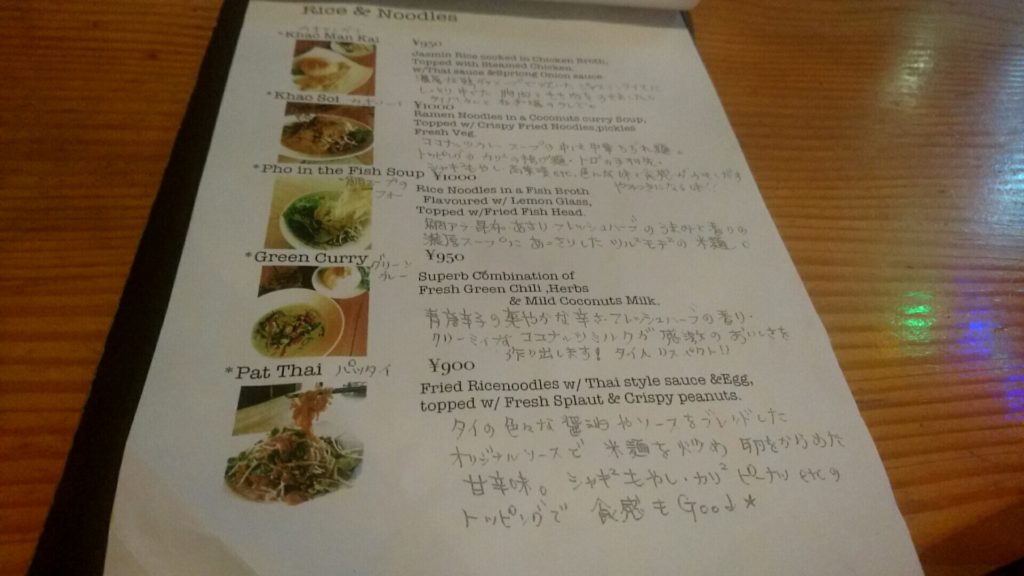 Rice & Noodles
*Khao Man Kai
¥950
Jasmin Rice cooked in Chicken Broth,
Topped with Steamed Chicken.
w/Thai sauce &Spriong Onion sauce
*Khao Soi カオソーイ
¥1000
Ramen Noodles in a Coconuts curry Soup,
Topped w/ Crispy Fried Noodles,pickles
Fresh Veg.
ココナッツカレースープの中に中華ちぢれ麺。
*Pho in the Fish Soup ¥1000
鯛スープの
フォー
Rice Noodles in a Fish Broth
Flavoured w/ Lemon Glass,
Topped w/Fried Fish Head.
鯛アラ・昆布・あさり フレッシュハーブのうまみと香りの
濃厚スープにあっさりした の米麺。
*Green Curry グリーン
カレー
¥950
Superb Combination of
Fresh Green Chili ,Herbs
& Mild Coconuts Milk.
青唐辛子の爽やかな辛さ・フレッシュハーブの香り・
クリーミィな ココナッツミルクが 感激の おいしさを
作り出します! タイ人
*Pat Thai パッタイ
¥900
Fried Ricenoodles w/ Thai style sauce &Egg,
topped w/ Fresh Splaut & Crispy peanuts.
タイの色々な醤油やソースをブレンドした
オリジナルソースで 米麺を炒め 卵をからめた
甘辛味。シャキ²もやし・カリ² ピーナツ etcの
トッピングで 食感もGood★